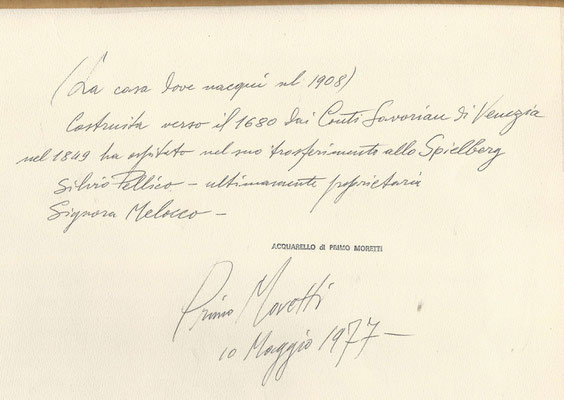 (La casa dove nacqui nel 1908)
Costruita verso il 1680 dai Conti Savorian di Venezia
nel 1849 ha ospitato nel suo trasferimento allo Spielberg
Silvio Pellico – ultimamente proprietaria
Signora Melocco –
ACQUARELLO di PRIMO MORETTI
Primo Moretti
10 Maggio 1977 –